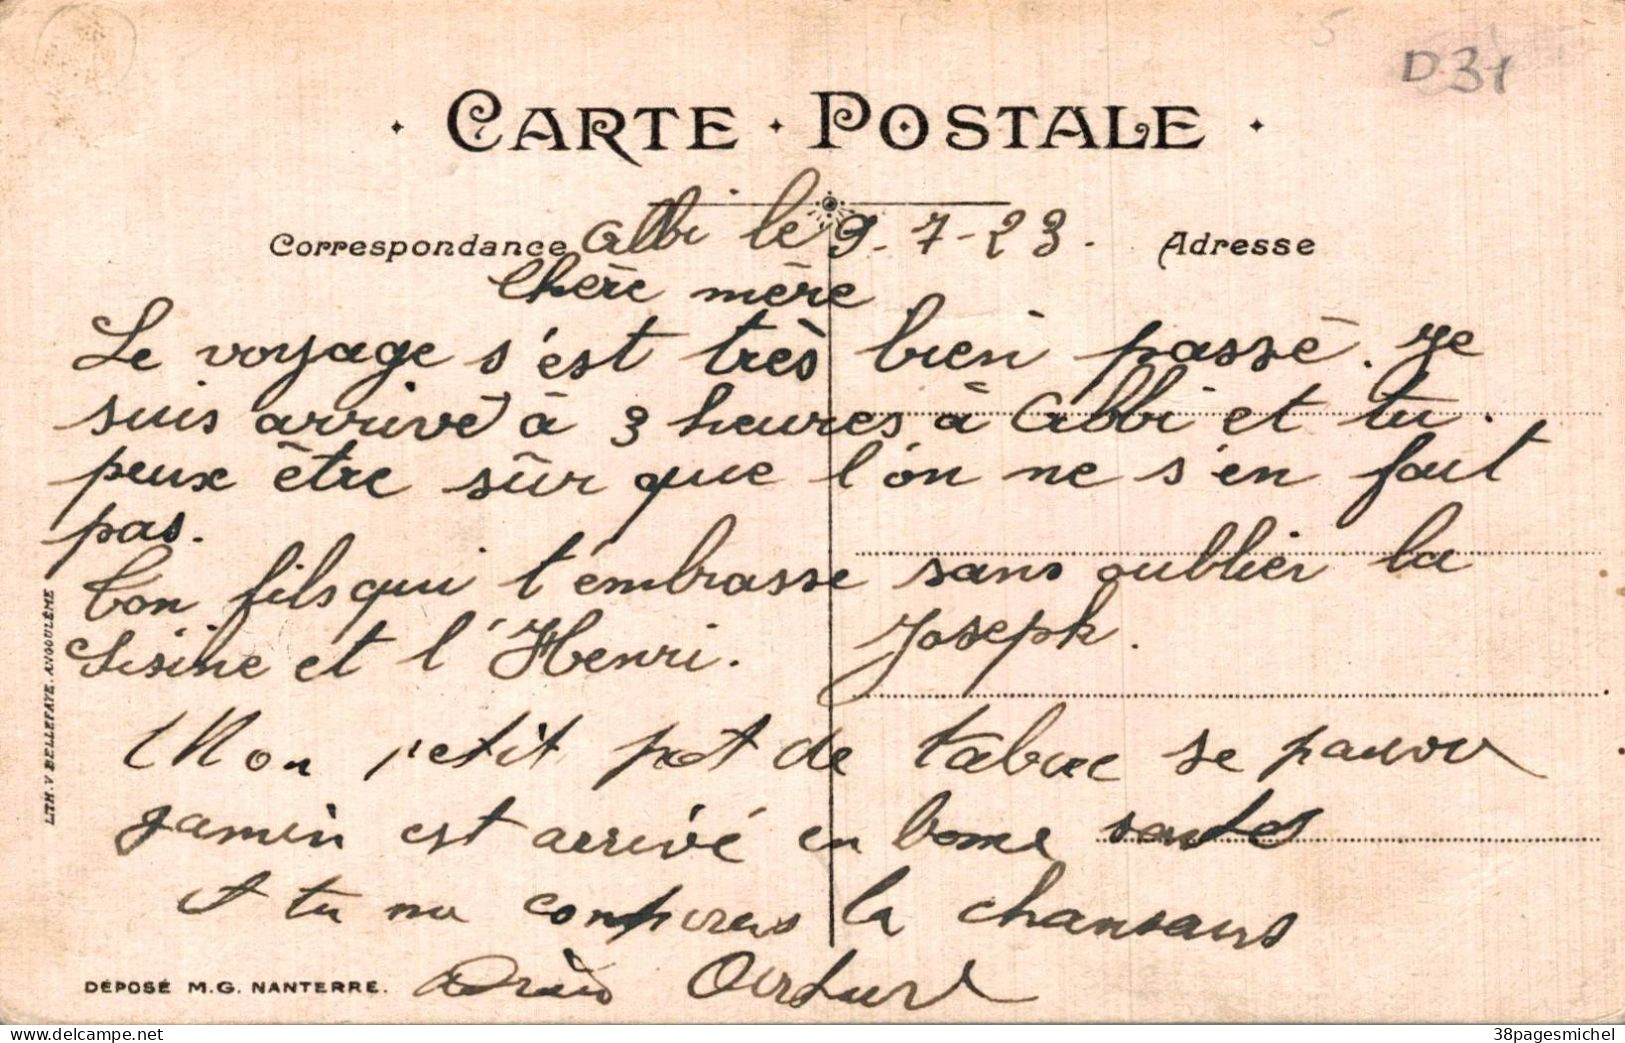 D31
CARTE · POSTALE
Correspondance
Adresse
Albi le 9-7-23.
Chère mère
Le voyage s'est très bien passé. Je
suis arrivé à 3 heures à Albi et tu
peux être sûr que l'on ne s'en fait
pas.
Ton fils qui t'embrasse sans oublier la
Sisine et l'Henri. Joseph.
Mon petit pot de tabac se
jamin est arrivé en bonne
et tu la
LITH. V BELLEFAYE. ANGOULÊME
DÉPOSÉ M.G. NANTERRE.
www.delcampe.net
38pagesmichel